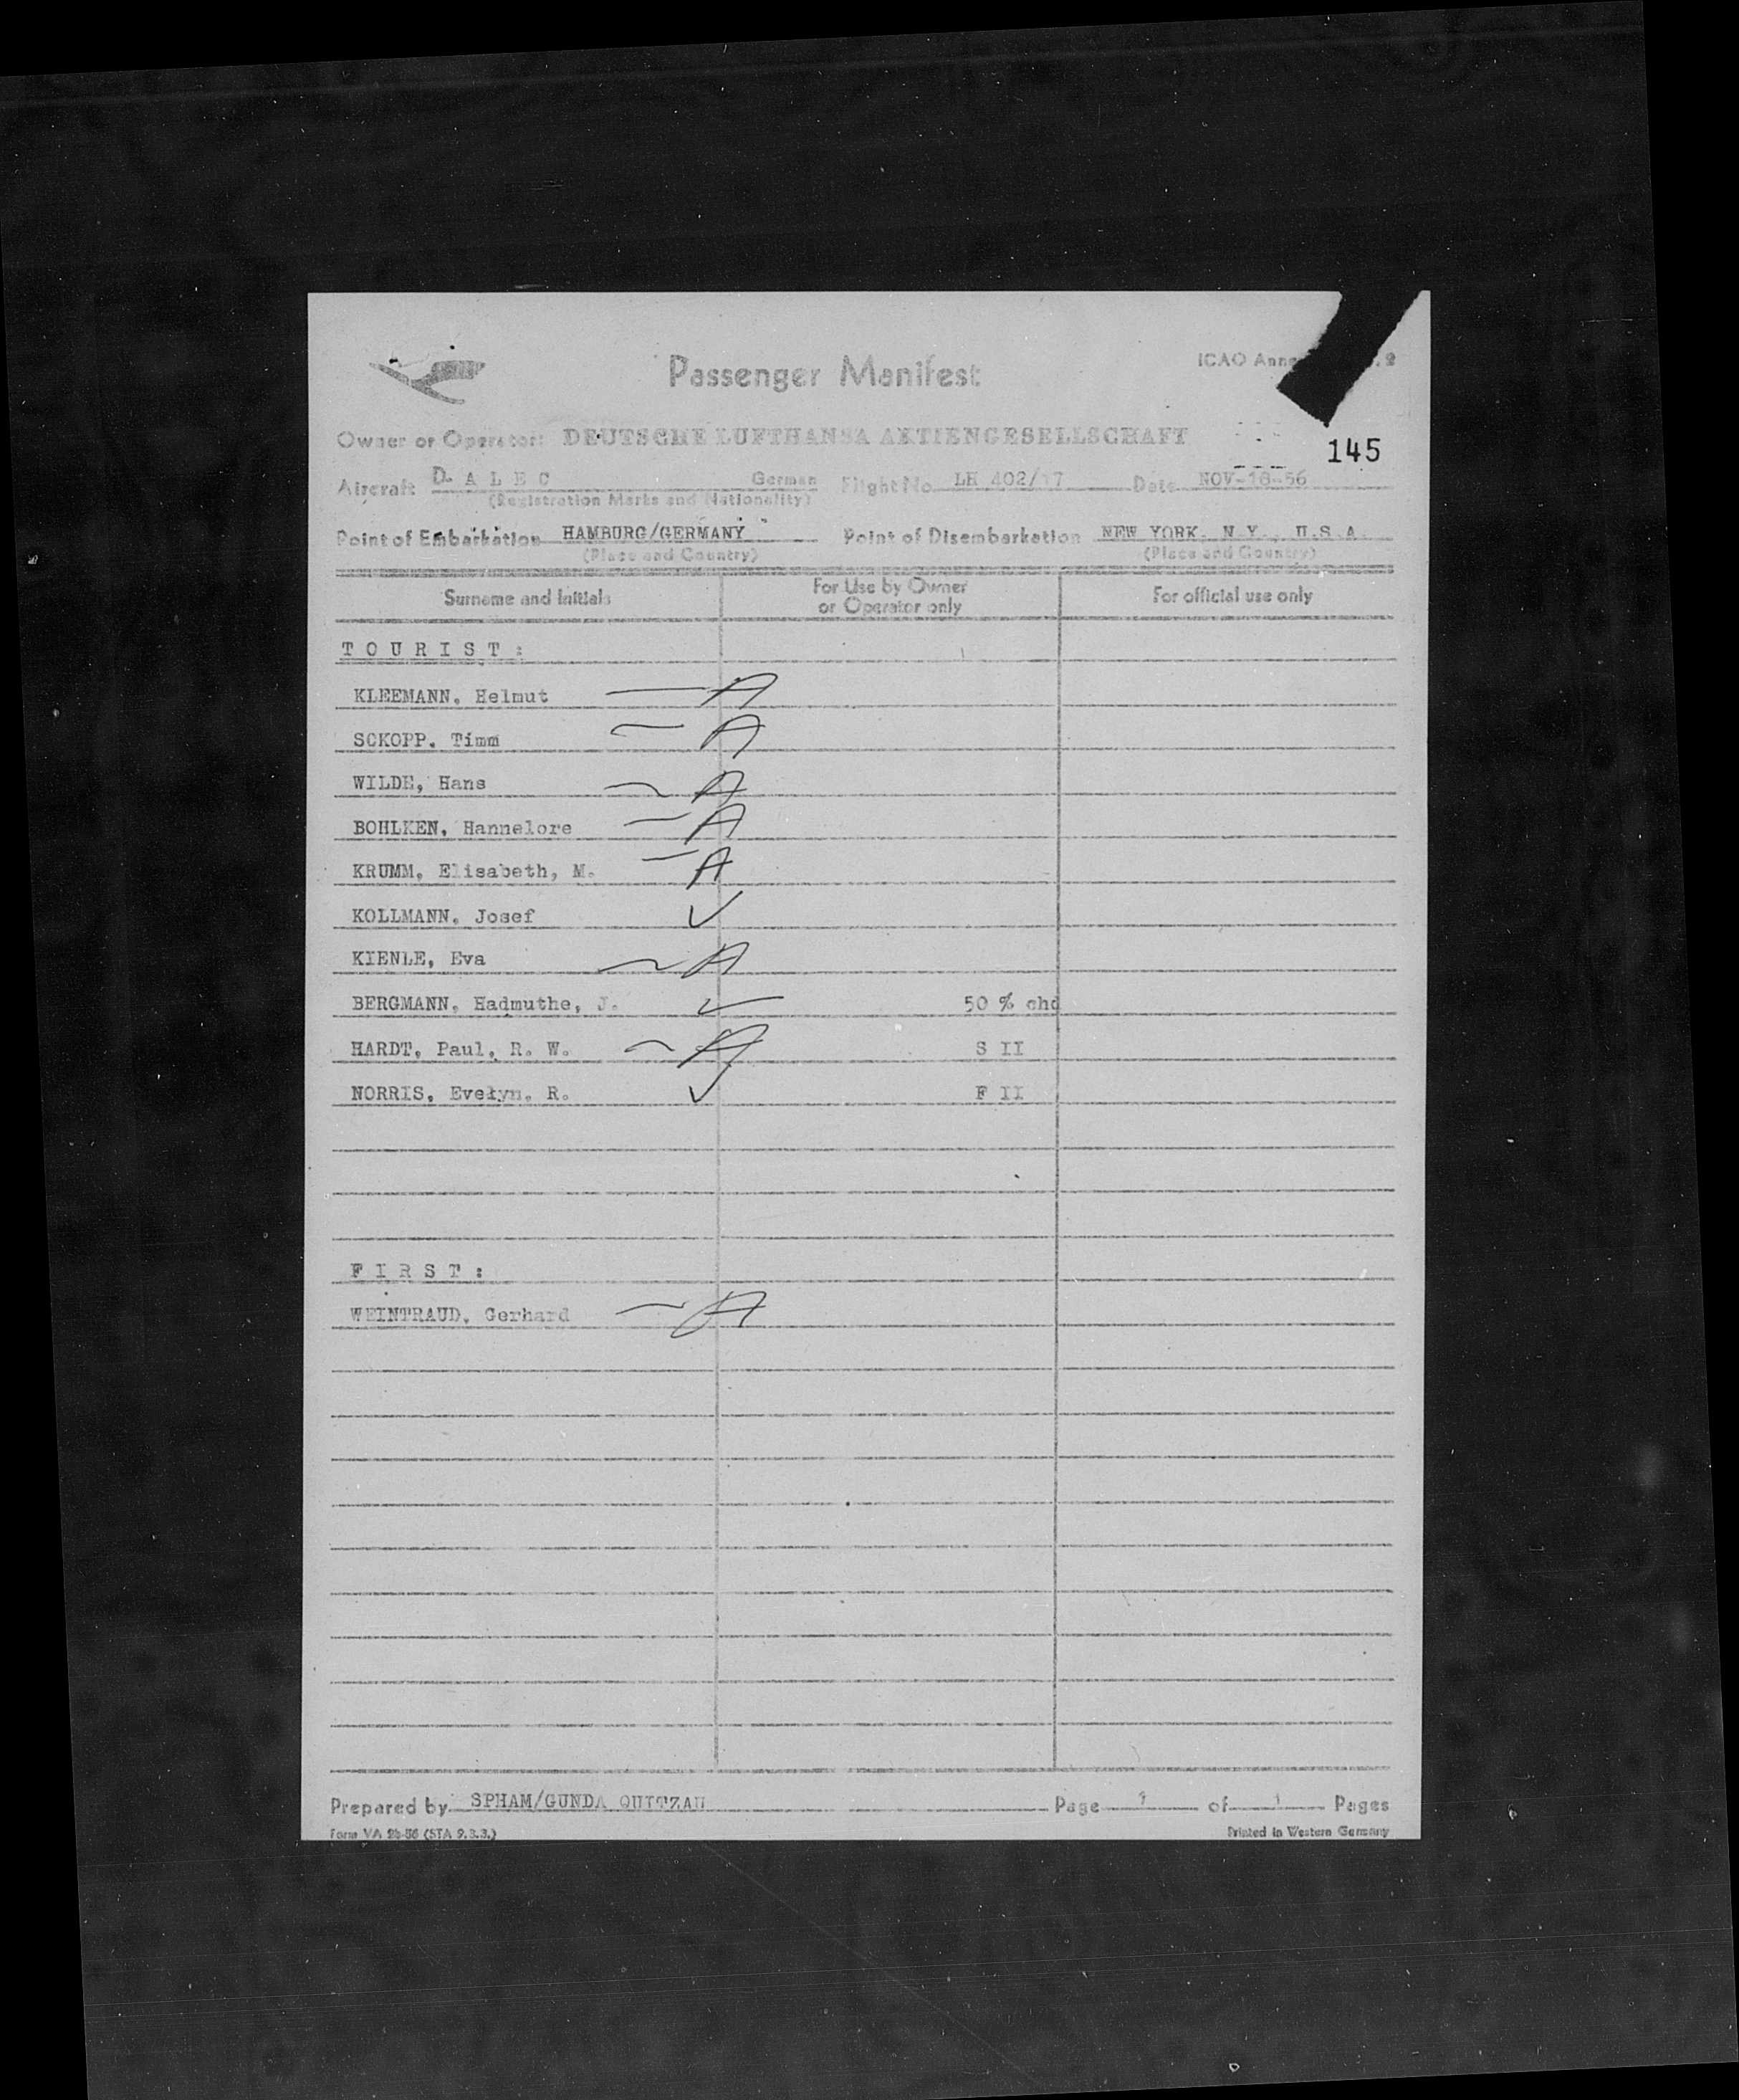 Passenger Manifest
ICAO
Owner or Operator: DEUTSCHE LUFTHANSA AKTIENGESELLSCHAFT
145
Aircraft D- A L E C German Flight No. LH 402/17 Date NOV-18-56
(Registration Marks and Nationality)
Point of Embarkation HAMBURG/GERMANY Point of Disembarkation NEW YORK, N.Y., U.S.A.
(Place and Country) (Place and Country)
Surname and Initials
For Use by Owner
or Operator only
For official use only
T O U R I S T :
KLEEMANN, Helmut — A
SCKOPP, Timm — A
WILDE, Hans ~ A
BOHLKEN, Hannelore — A
KRUMM, Elisabeth, M. — A
KOLLMANN, Josef ✓
KIENLE, Eva ~ A
BERGMANN, Hadmuthe, J. ✓ 50 % chd
HARDT, Paul, R. W. ~ A S II
NORRIS, Evelyn, R. ✓ F II
F I R S T :
WEINTRAUD, Gerhard ~ A
Prepared by SPHAM/GUNDA QUITZAU Page 1 of 1 Pages
Form VA (STA 9.3.3.) Printed in Western Germany